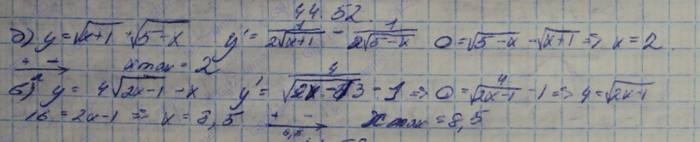 44.52.
а) y=√x+1 + √5-x y'= 1/2√x+1 - 1/2√5-x 0=√5-x - √x+1 => x=2
+ - xmax=2
б) y= 4√2x-1 -x y'= 4/√2x-1 - 1 => 0= 4/√2x-1 -1 => 4=√2x-1
16=2x-1 => x=8,5 + - 8,5 xmax=8,5